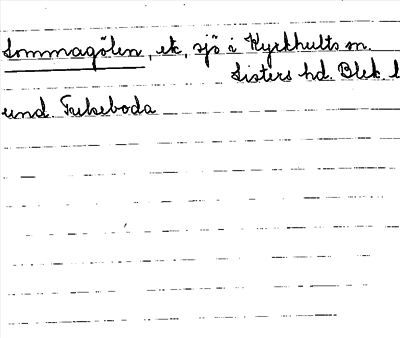 Sommagölen, ek, sjö i Kyrkhults sn.
Listers hd. Blek. l
und. Tukeboda